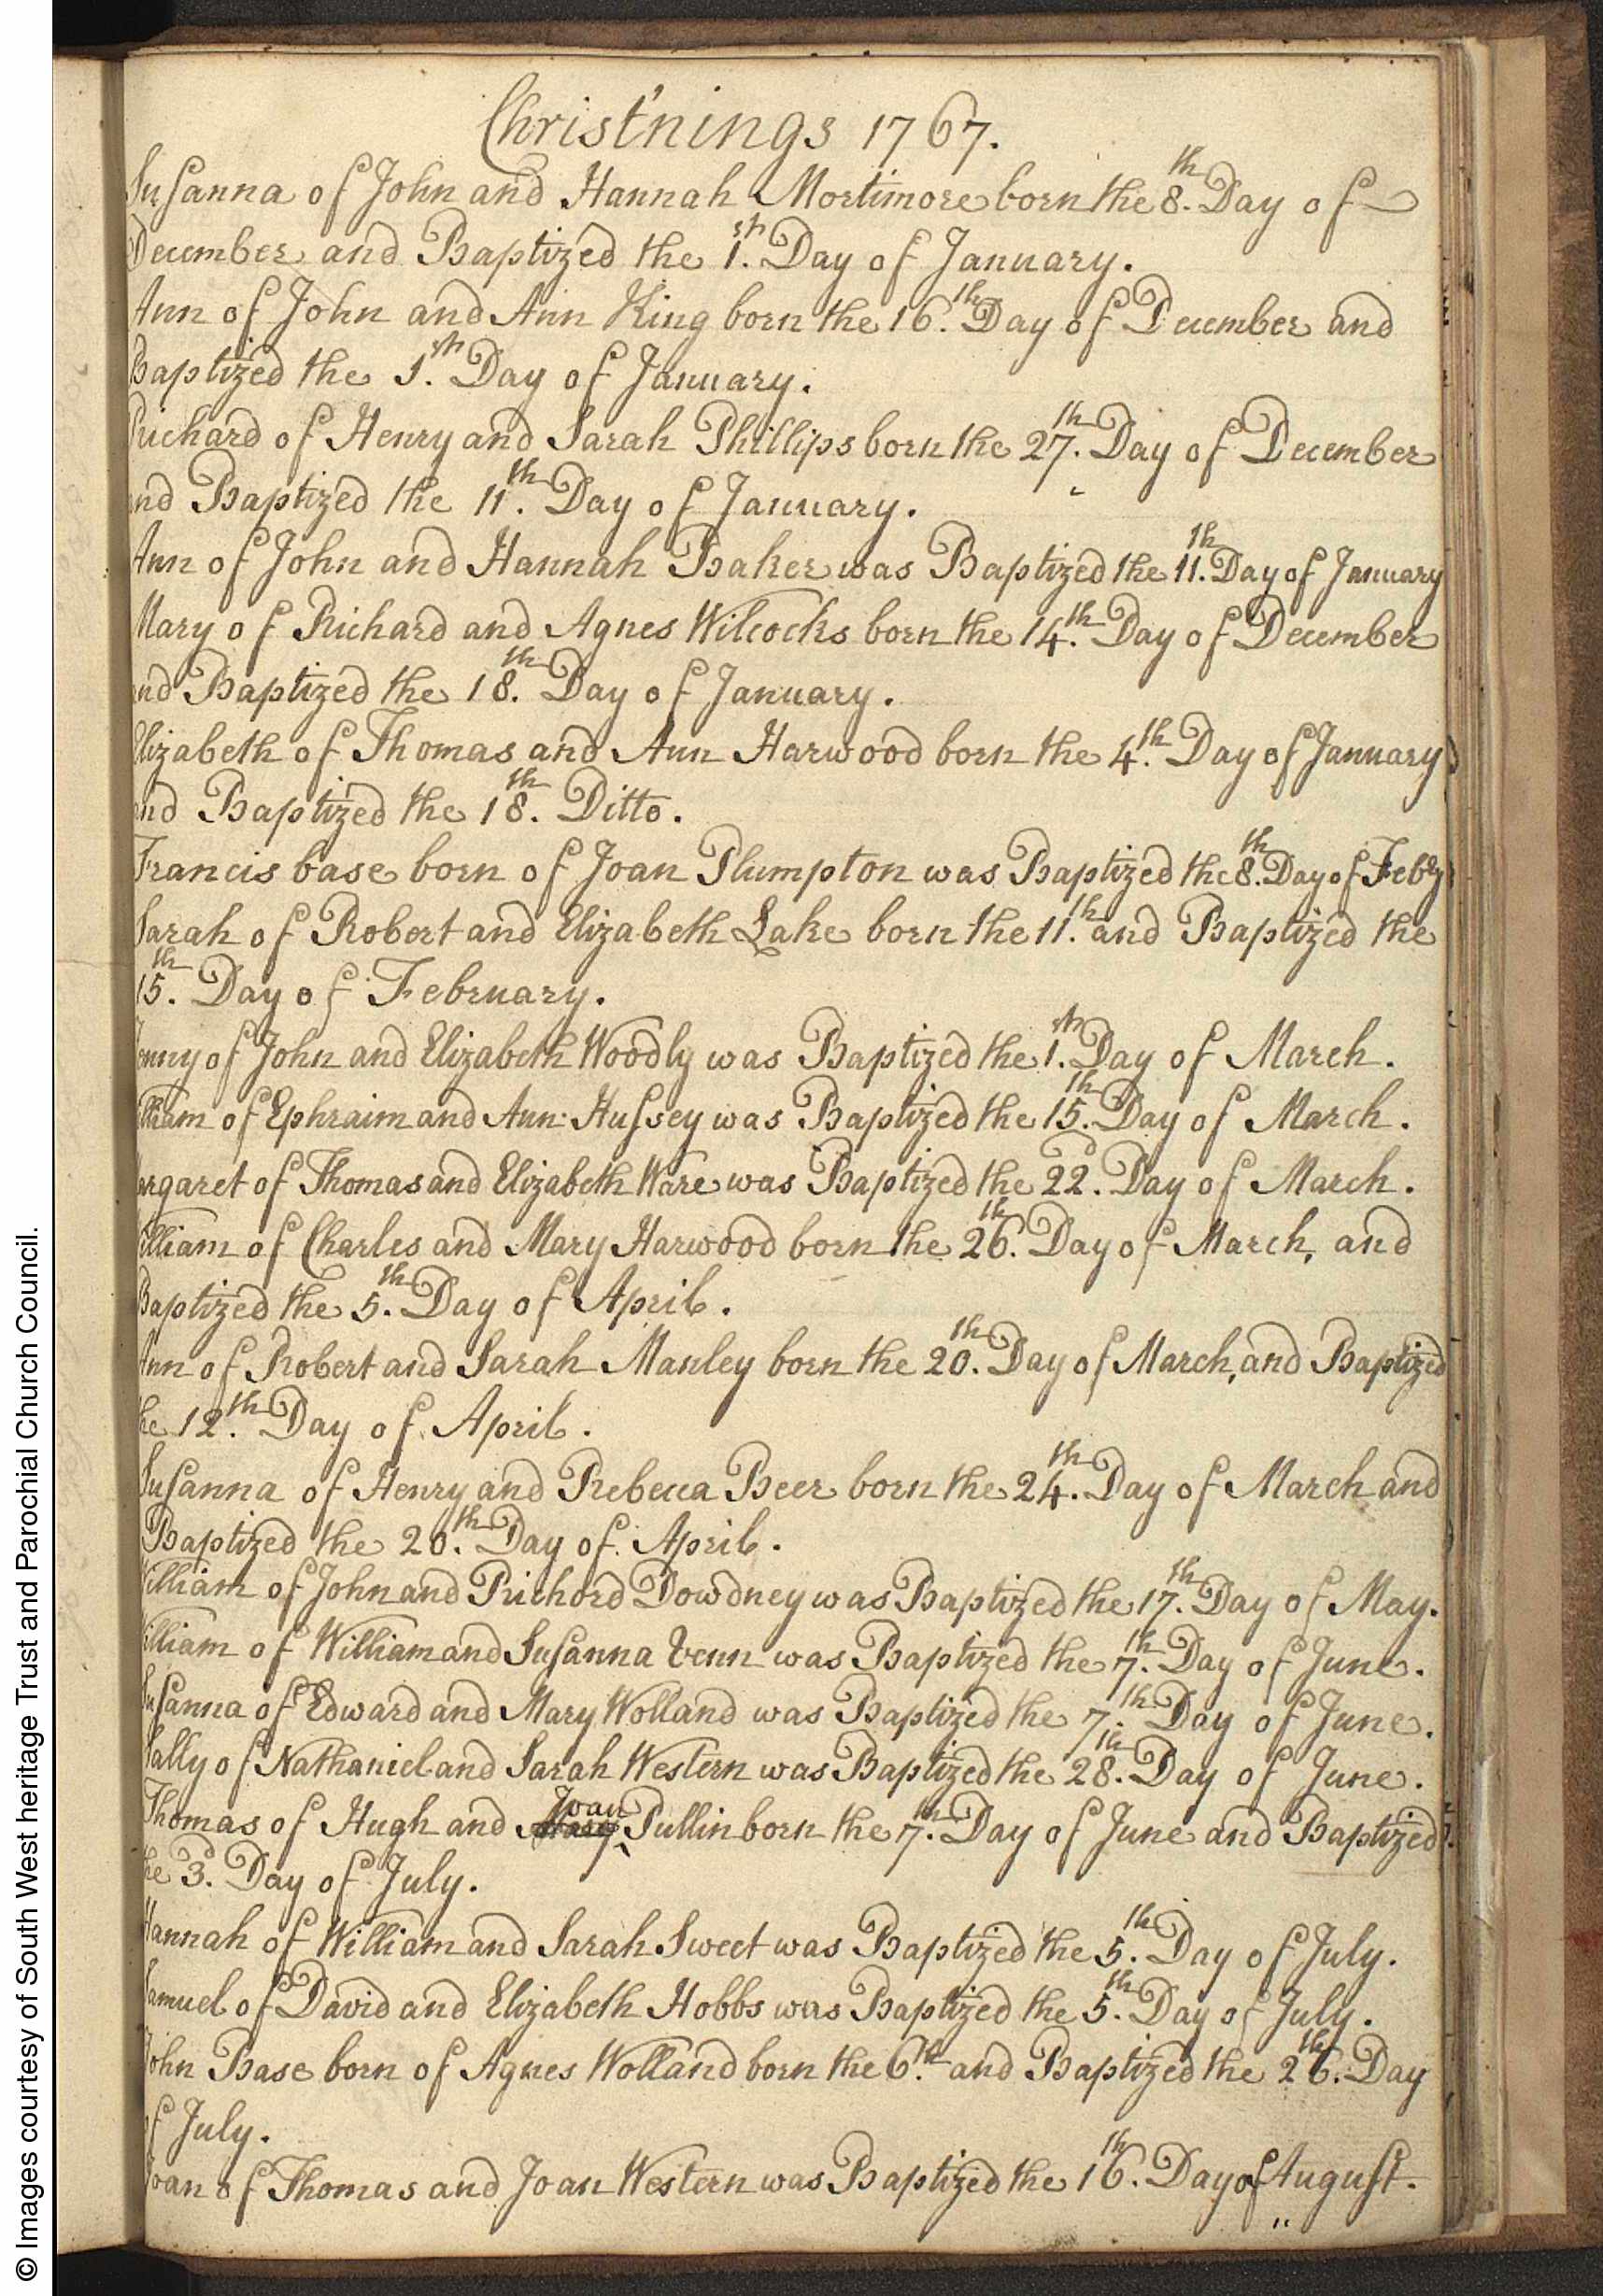 Christ'nings 1767.
Susanna of John and Hannah Mortimore born the 8.th Day of
December and Baptized the 1.st Day of January.
Ann of John and Ann King born the 16.th Day of December and
Baptized the 1.st Day of January.
Richard of Henry and Sarah Phillips born the 27.th Day of December
and Baptized the 11.th Day of January.
Ann of John and Hannah Baker was Baptized the 11.th Day of January
Mary of Richard and Agnes Wilcocks born the 14.th Day of December
and Baptized the 18.th Day of January.
Elizabeth of Thomas and Ann Harwood born the 4.th Day of January
and Baptized the 18.th Ditto.
Francis base born of Joan Plumpton was Baptized the 8.th Day of Febry
Sarah of Robert and Elizabeth Lake born the 11.th and Baptized the
15.th Day of February.
of John and Elizabeth Woodly was Baptized the 1.st Day of March.
William of Ephraim and Ann Hussey was Baptized the 15.th Day of March.
Margaret of Thomas and Elizabeth Ware was Baptized the 22.d Day of March.
William of Charles and Mary Harwood born the 26.th Day of March, and
Baptized the 5.th Day of April.
Ann of Robert and Sarah Manley born the 20.th Day of March, and Baptized
the 12.th Day of April.
Susanna of Henry and Rebecca Beer born the 24.th Day of March and
Baptized the 20.th Day of April.
William of John and Richord Dowdney was Baptized the 17.th Day of May.
William of William and Susanna Venn was Baptized the 7.th Day of June.
Susanna of Edward and Mary Wolland was Baptized the 7.th Day of June.
Sally of Nathaniel and Sarah Western was Baptized the 28.th Day of June.
Thomas of Hugh and Joan Pullin born the 7.th Day of June and Baptized
the 3.d Day of July.
Hannah of William and Sarah Sweet was Baptized the 5.th Day of July.
Samuel of David and Elizabeth Hobbs was Baptized the 5.th Day of July.
John Base born of Agnes Wolland born the 6.th and Baptized the 26.th Day
of July.
Joan of Thomas and Joan Western was Baptized the 16.th Day of August.
© Images courtesy of South West heritage Trust and Parochial Church Council.